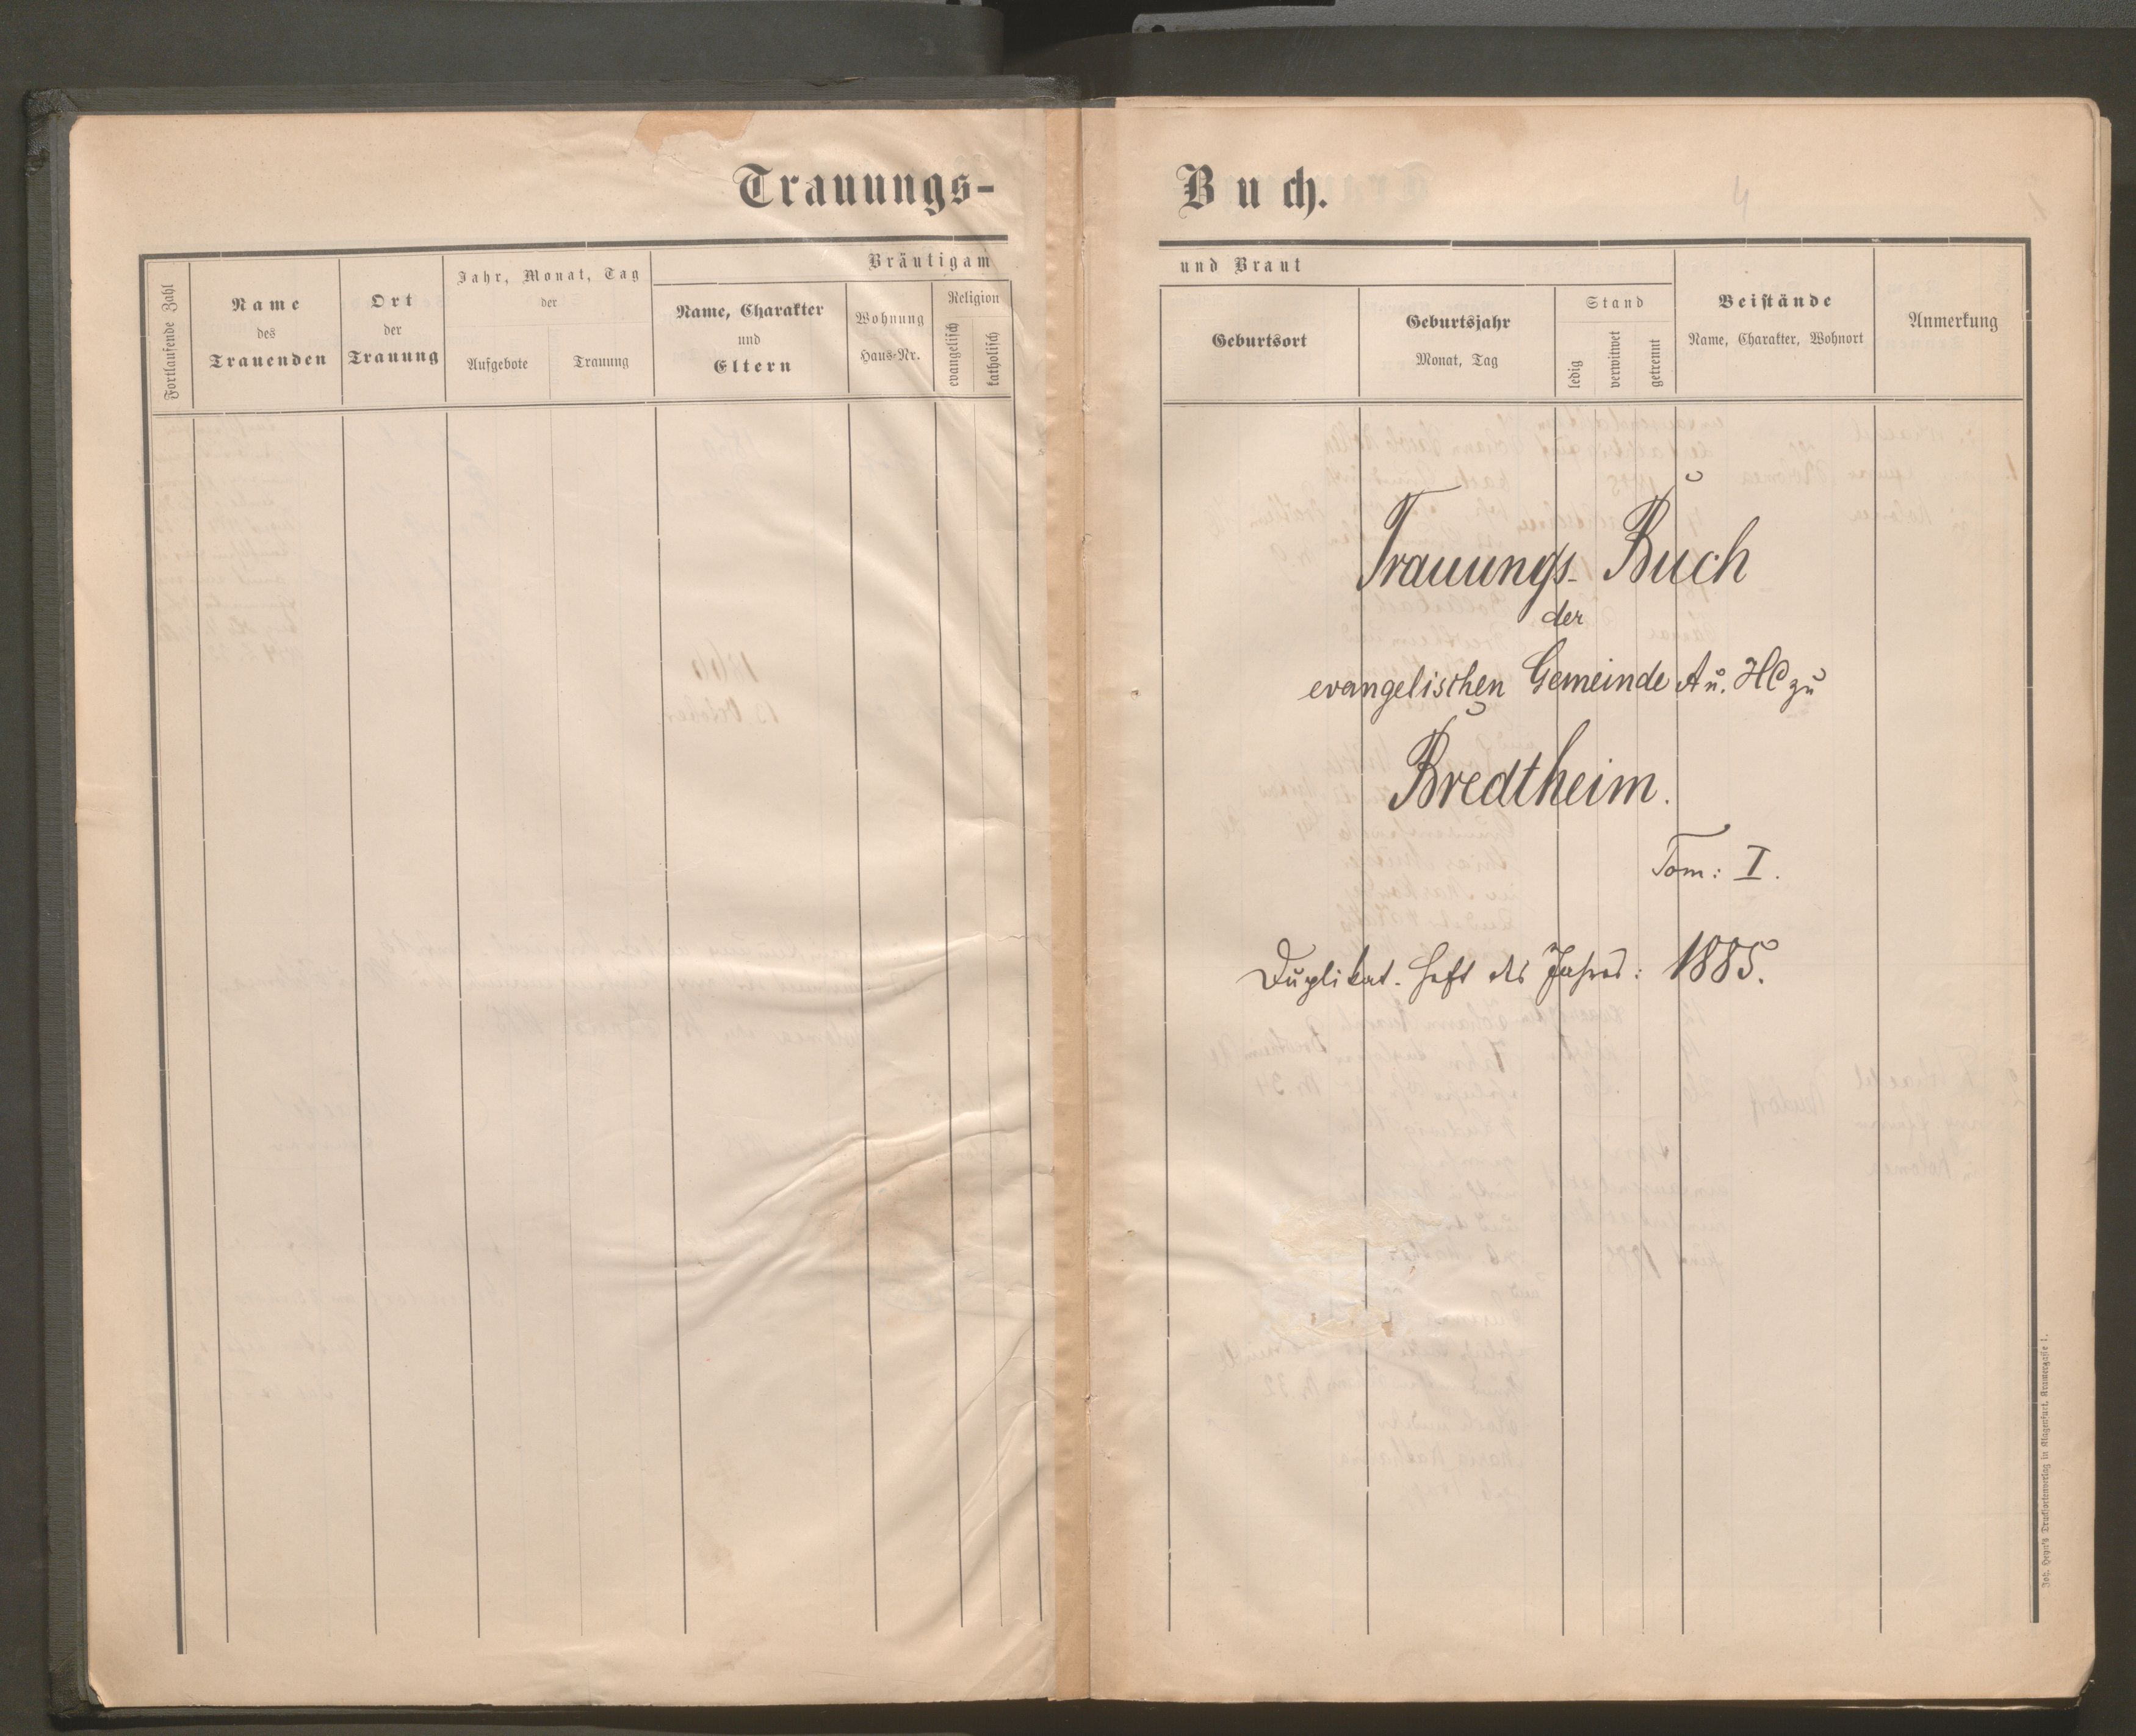 Trauungs-
Buch.
Fortlaufende Zahl
Name
des
Trauenden
Ort
der
Trauung
Jahr, Monat, Tag
der
Aufgebote
Trauung
Bräutigam
Name, Charakter
und
Eltern
Wohnung
Haus-Nr.
Religion
evangelisch
katholisch
und Braut
Geburtsort
Geburtsjahr
Monat, Tag
Stand
ledig
verwitwet
getrennt
Beistände
Name, Charakter, Wohnort
Anmerkung
4
Trauungs-Buch
der
evangelischen Gemeinde A u. HC zu
Bredtheim.
Tom: I.
Duplikat-Heft des Jahres: 1885.
Joh. Heyn's Drucksortenverlag in Klagenfurt, Kramergasse 1.